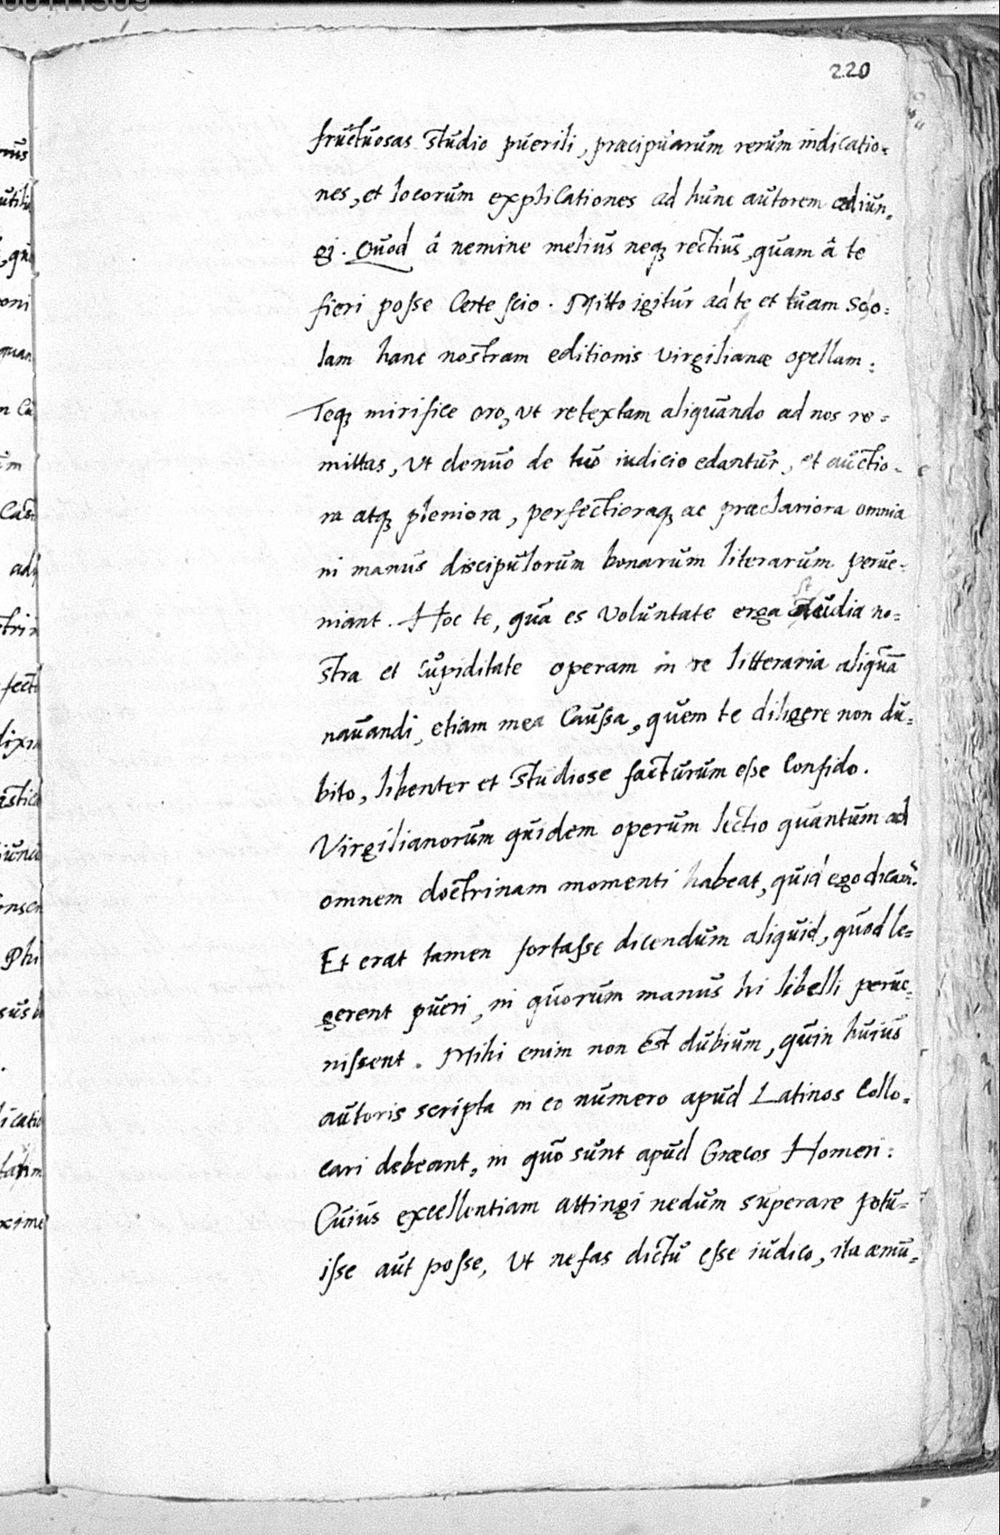 220
fructuosas studio puerili, præcipuarum rerum indicatio-
nes, et locorum explicationes ad hunc autorem adiun,
gi. Quod â nemine melius neq; rectius, quam â te
fieri posse certe scio. Mitto igitur ad te et tuam Scho:
lam hanc nostram editionis virgilianæ opellam:
Teq; mirifice oro, ut retextam aliquando ad nos re-
mittas, ut denuo de tuo iudicio edantur, et auctio-
ra atq; pleniora, perfectioraq; ac præclariora omnia
in manus discipulorum bonarum literarum perue-
niant. Hoc te, qua es voluntate erga studia no-
stra et cupiditate operam in re litteraria aliquā
nauandi, etiam mea caussa, quem te diligere non du-
bito, libenter et studiose facturum esse confido.
Virgilianorum quidem operum lectio quantum ad
omnem doctrinam momenti habeat, quid ego dicam?
Et erat tamen fortasse dicendum aliquid, quod le-
gerent pueri, in quorum manus hi libelli perue-
nissent. Mihi enim non est dubium, quin huius
autoris scripta in eo numero apud Latinos collo-
cari debeant, in quo sunt apud Græcos Homeri:
Cuius excellentiam attingi nedum superare potu-
isse aut posse, ut nefas dictu esse iudico, ita æmu-